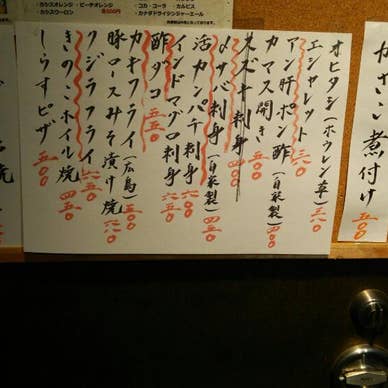 かさい煮付け 五〇〇
オヒタシ(ホウレン草) 三六〇
エシャレット 三六〇
アン肝ポン酢(自家製) 四五〇
カマス開き 五〇〇
スズキ刺身 四〇〇
〆サバ刺身(自家製) 四五〇
活カンパチ刺身 六〇〇
インドマグロ刺身 六五〇
酢ダコ 五五〇
カキフライ(広島) 五〇〇
豚ロースみそ漬け焼 六六〇
クジラフライ 六五〇
きのこホイル焼 四五〇
しらすピザ 五〇〇
・カシスオレンジ・ピーチオレンジ
・カシスウーロン
・コカ・コーラ・カルピス
・カナダドライジンジャーエール